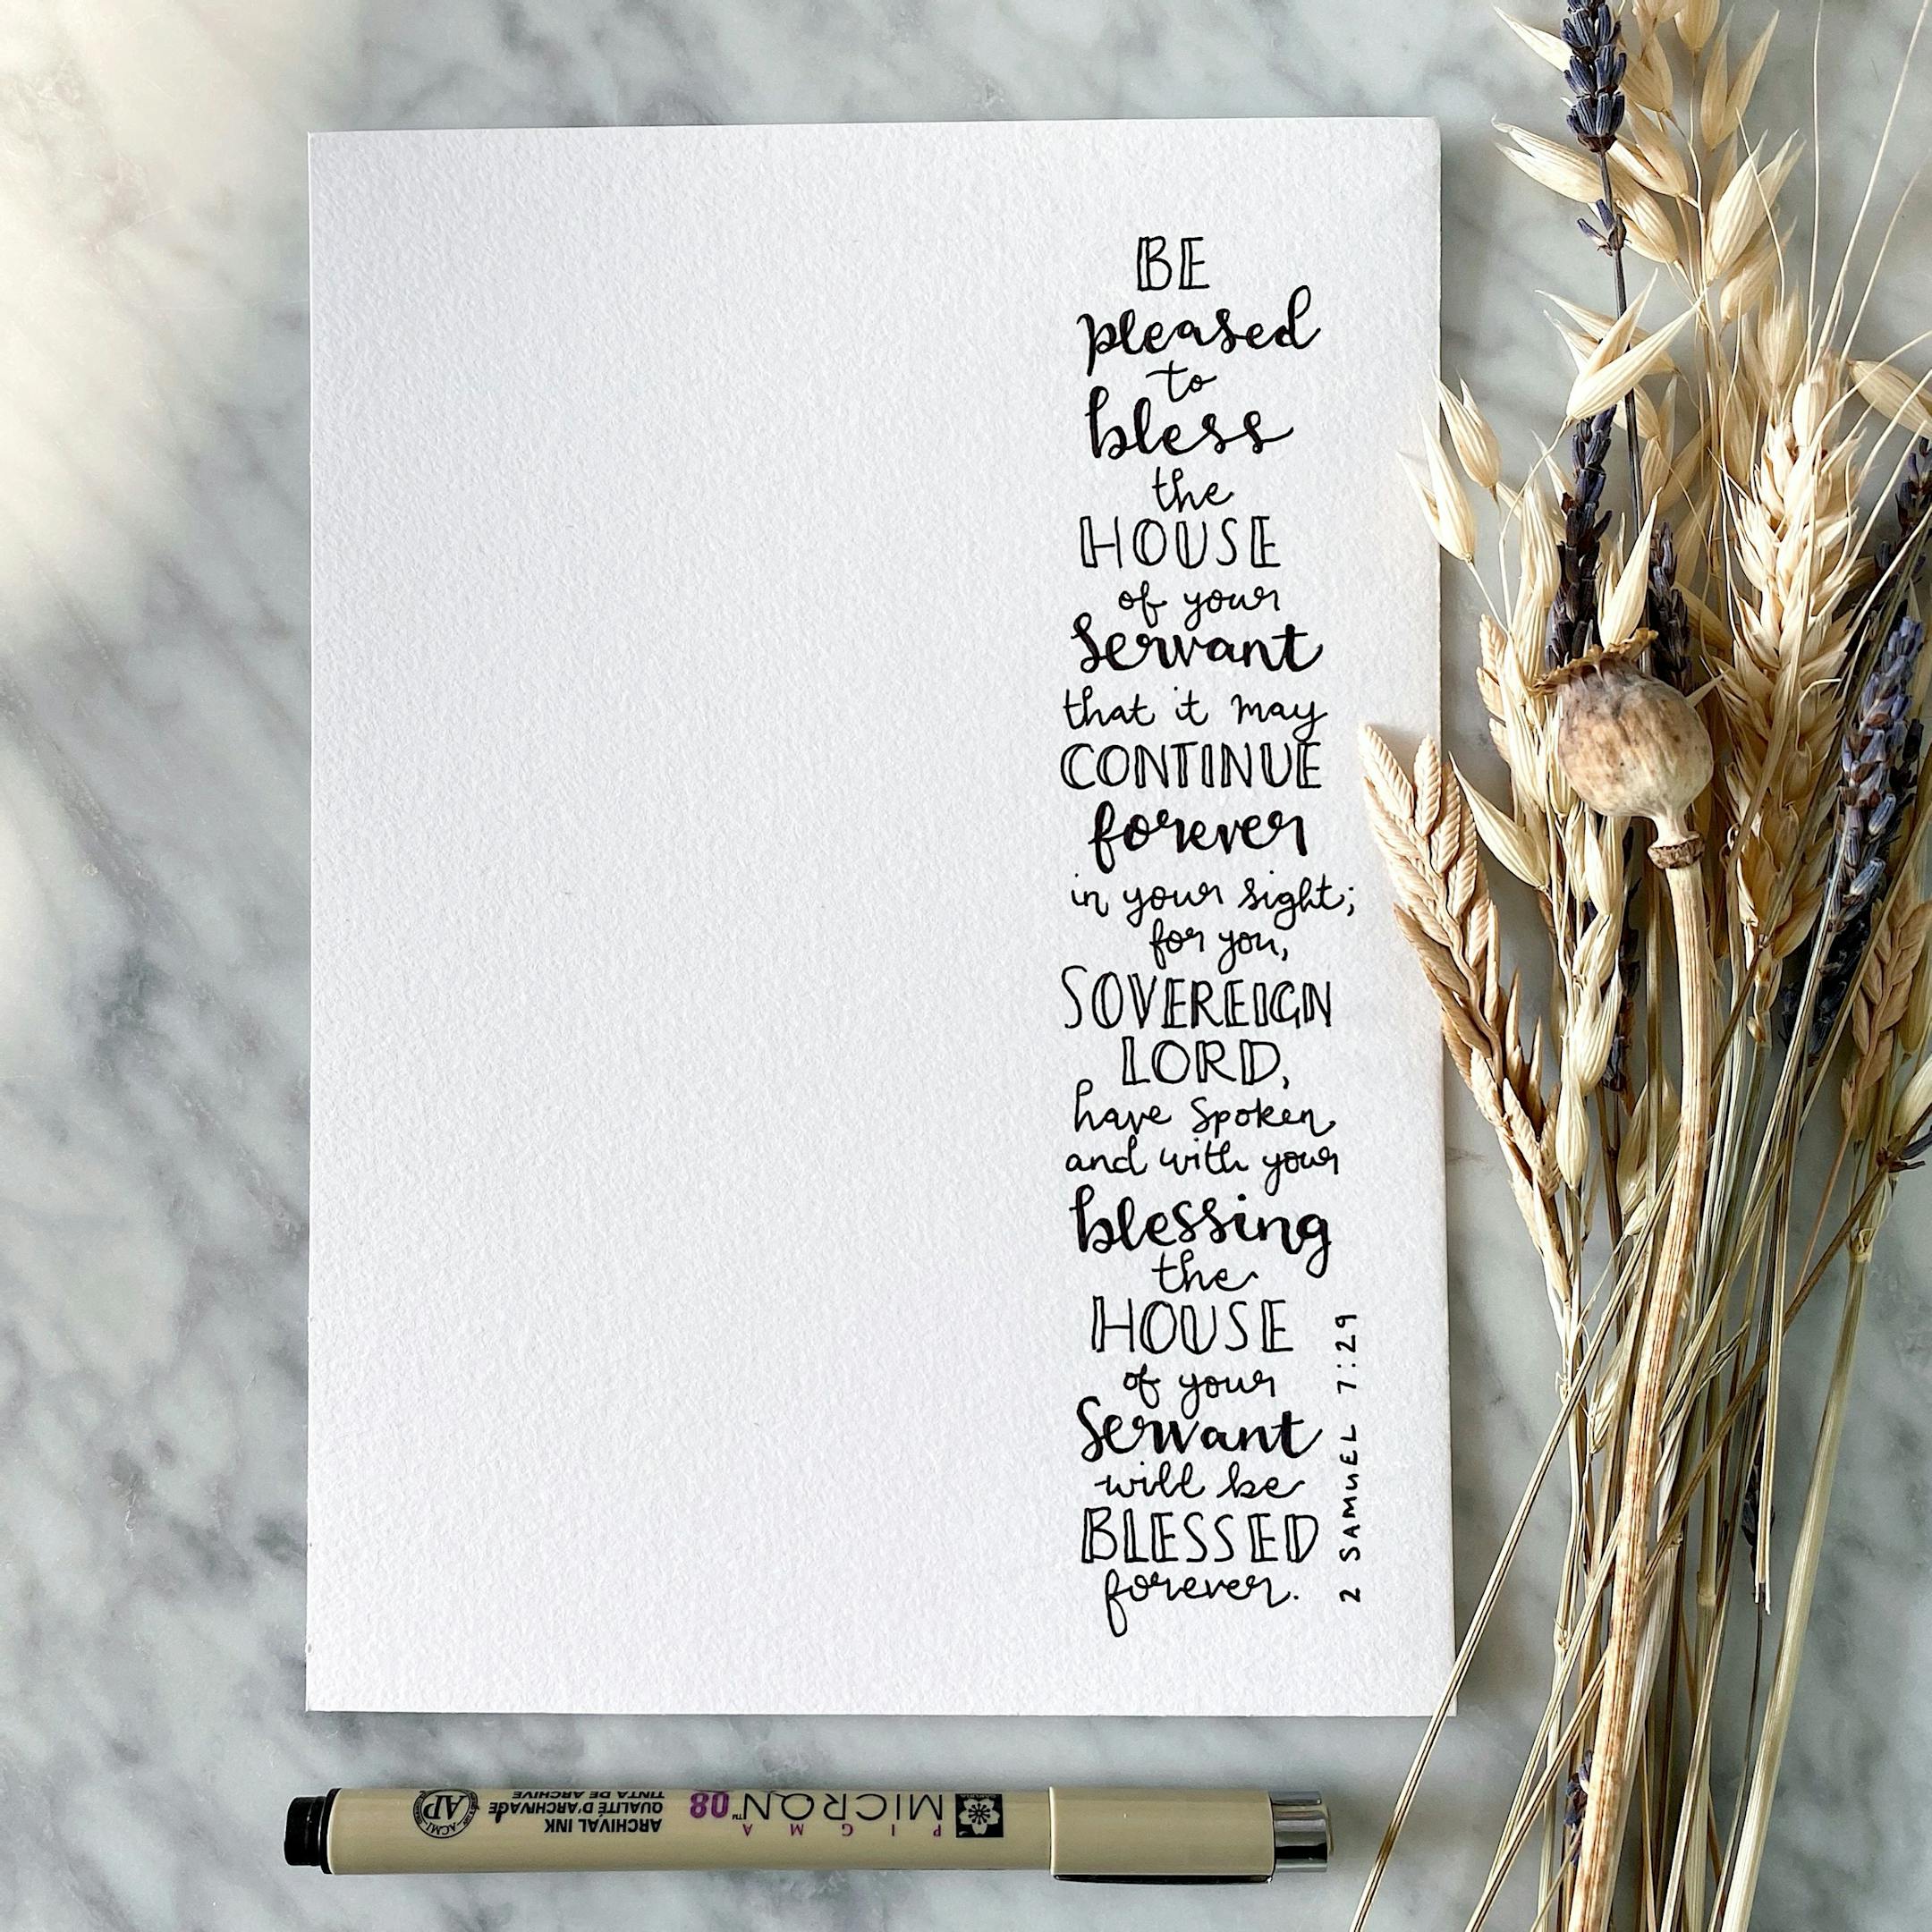 BE
pleased
to
bless
the
HOUSE
of your
Servant
that it may
CONTINUE
forever
in your sight;
for you,
SOVEREIGN
LORD,
have spoken
and with your
blessing
the
HOUSE
of your
Servant
will be
BLESSED
forever.
2 SAMUEL 7:29
PIGMA
MICRON™ 08
ARCHIVAL INK
QUALITÉ D'ARCHIVAGE
TINTA DE ARCHIVE
AP
ACMI